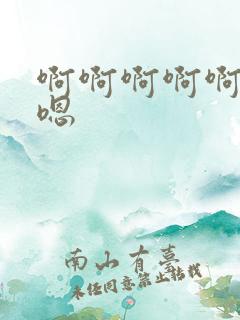 啊啊啊啊啊
嗯
南山有墓
未经同意禁止转载